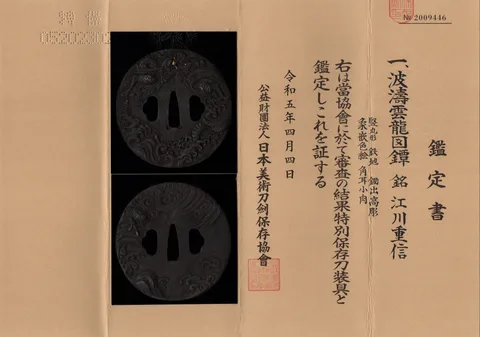 № 2009446
鑑定書
一、波濤雲龍図鐔 銘 江川重信
竪丸形 鉄地 鋤出高彫
象嵌色絵 角耳小肉
右は當協會に於て審査の結果特別保存刀装具と
鑑定しこれを証する
令和五年四月四日
公益財團法人日本美術刀劍保存協會